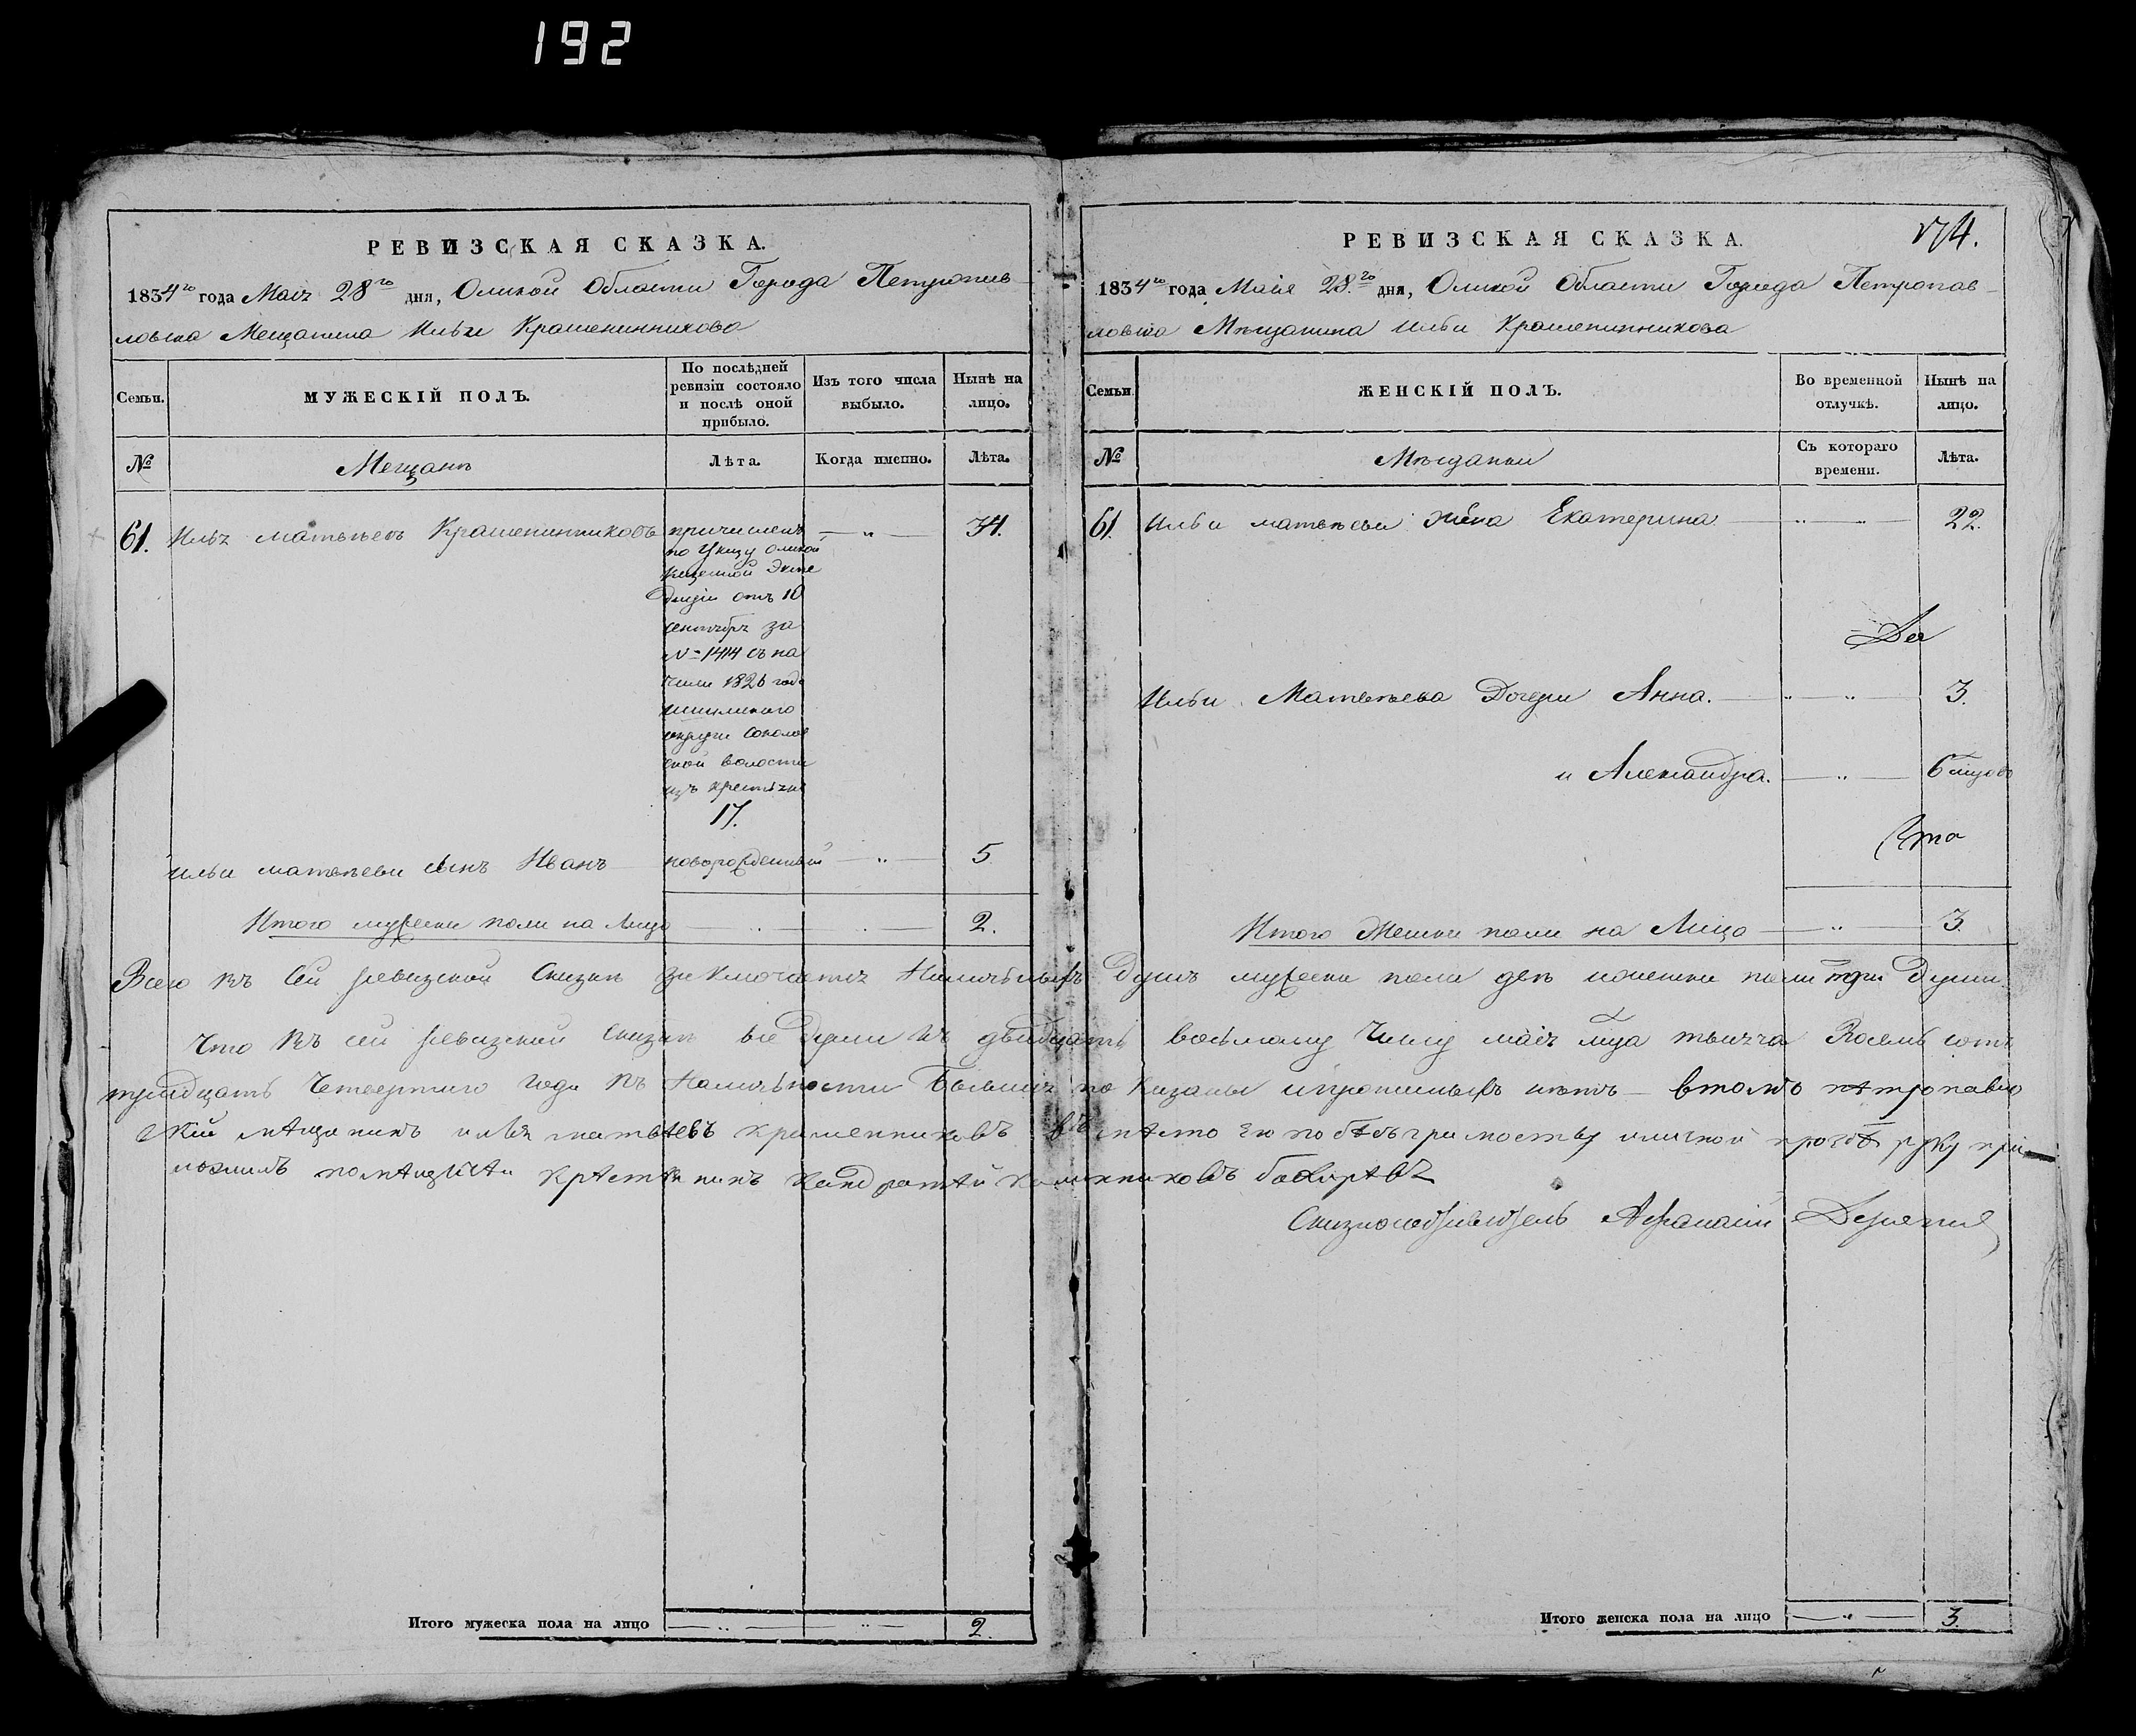 192
РЕВИЗСКАЯ СКАЗКА.
1834го года Маія 28го дня, Омской Области Города Петропав-
ловска Мещанина Ильи Крашенинникова
Семьи.
МУЖЕСКІЙ ПОЛЪ.
По послѣдней ревизіи состояло и послѣ оной прибыло.
Изъ того числа выбыло.
Нынѣ на лицо.
№
Мещанъ
Лѣта.
Когда именно.
Лѣта.
61. Илья Матвѣевъ Крашенинниковъ
причисленъ
34.
по Указу Омской
Казенной Экспе
диціи отъ 10
сентября за
№ 1414 съ на
чала 1826 года
ишимскаго
округи Соколов
ской волости
изъ крестьянъ
17.
Ильи матвѣева сынъ Иванъ новорожденный 5
Итого мужеска пола на Лицо 2.
РЕВИЗСКАЯ СКАЗКА.
174.
1834го года Маія 28го дня, Омской Области Города Петропав-
ловска Мѣщанина Ильи Крашенинникова
Семьи
ЖЕНСКІЙ ПОЛЪ.
Во временной отлучкѣ.
Нынѣ на лицо.
№
Мѣщанки
Съ котораго времени.
Лѣта.
61. Ильи матвѣева жена Екатерина 22.
Ильи Матвѣева Дочери Анна. 3.
и Александра. 6 мцовъ
Итого Женска пола на Лицо 3.
Всего въ сей ревизской Сказкѣ заключается Наличныхъ Душъ мужеска пола двѣ и женска пола три Души.
Что въ сей ревизской сказкѣ все души къ двадцать восьмому Числу маія мца тысяча Восемь сотъ
тридцать Четвертаго года въ Наличности Бывшія показаны и прописныхъ нѣтъ — втомъ петропавло
скій мещанинъ илья матвеевъ крашенниковъ вместо его по безъграмоству иличной прозбе руку при
ложилъ крестьянинъ
Сказкосоставитель Афанасій
Итого мужеска пола на лицо 2.
Итого женска пола на лицо 3.